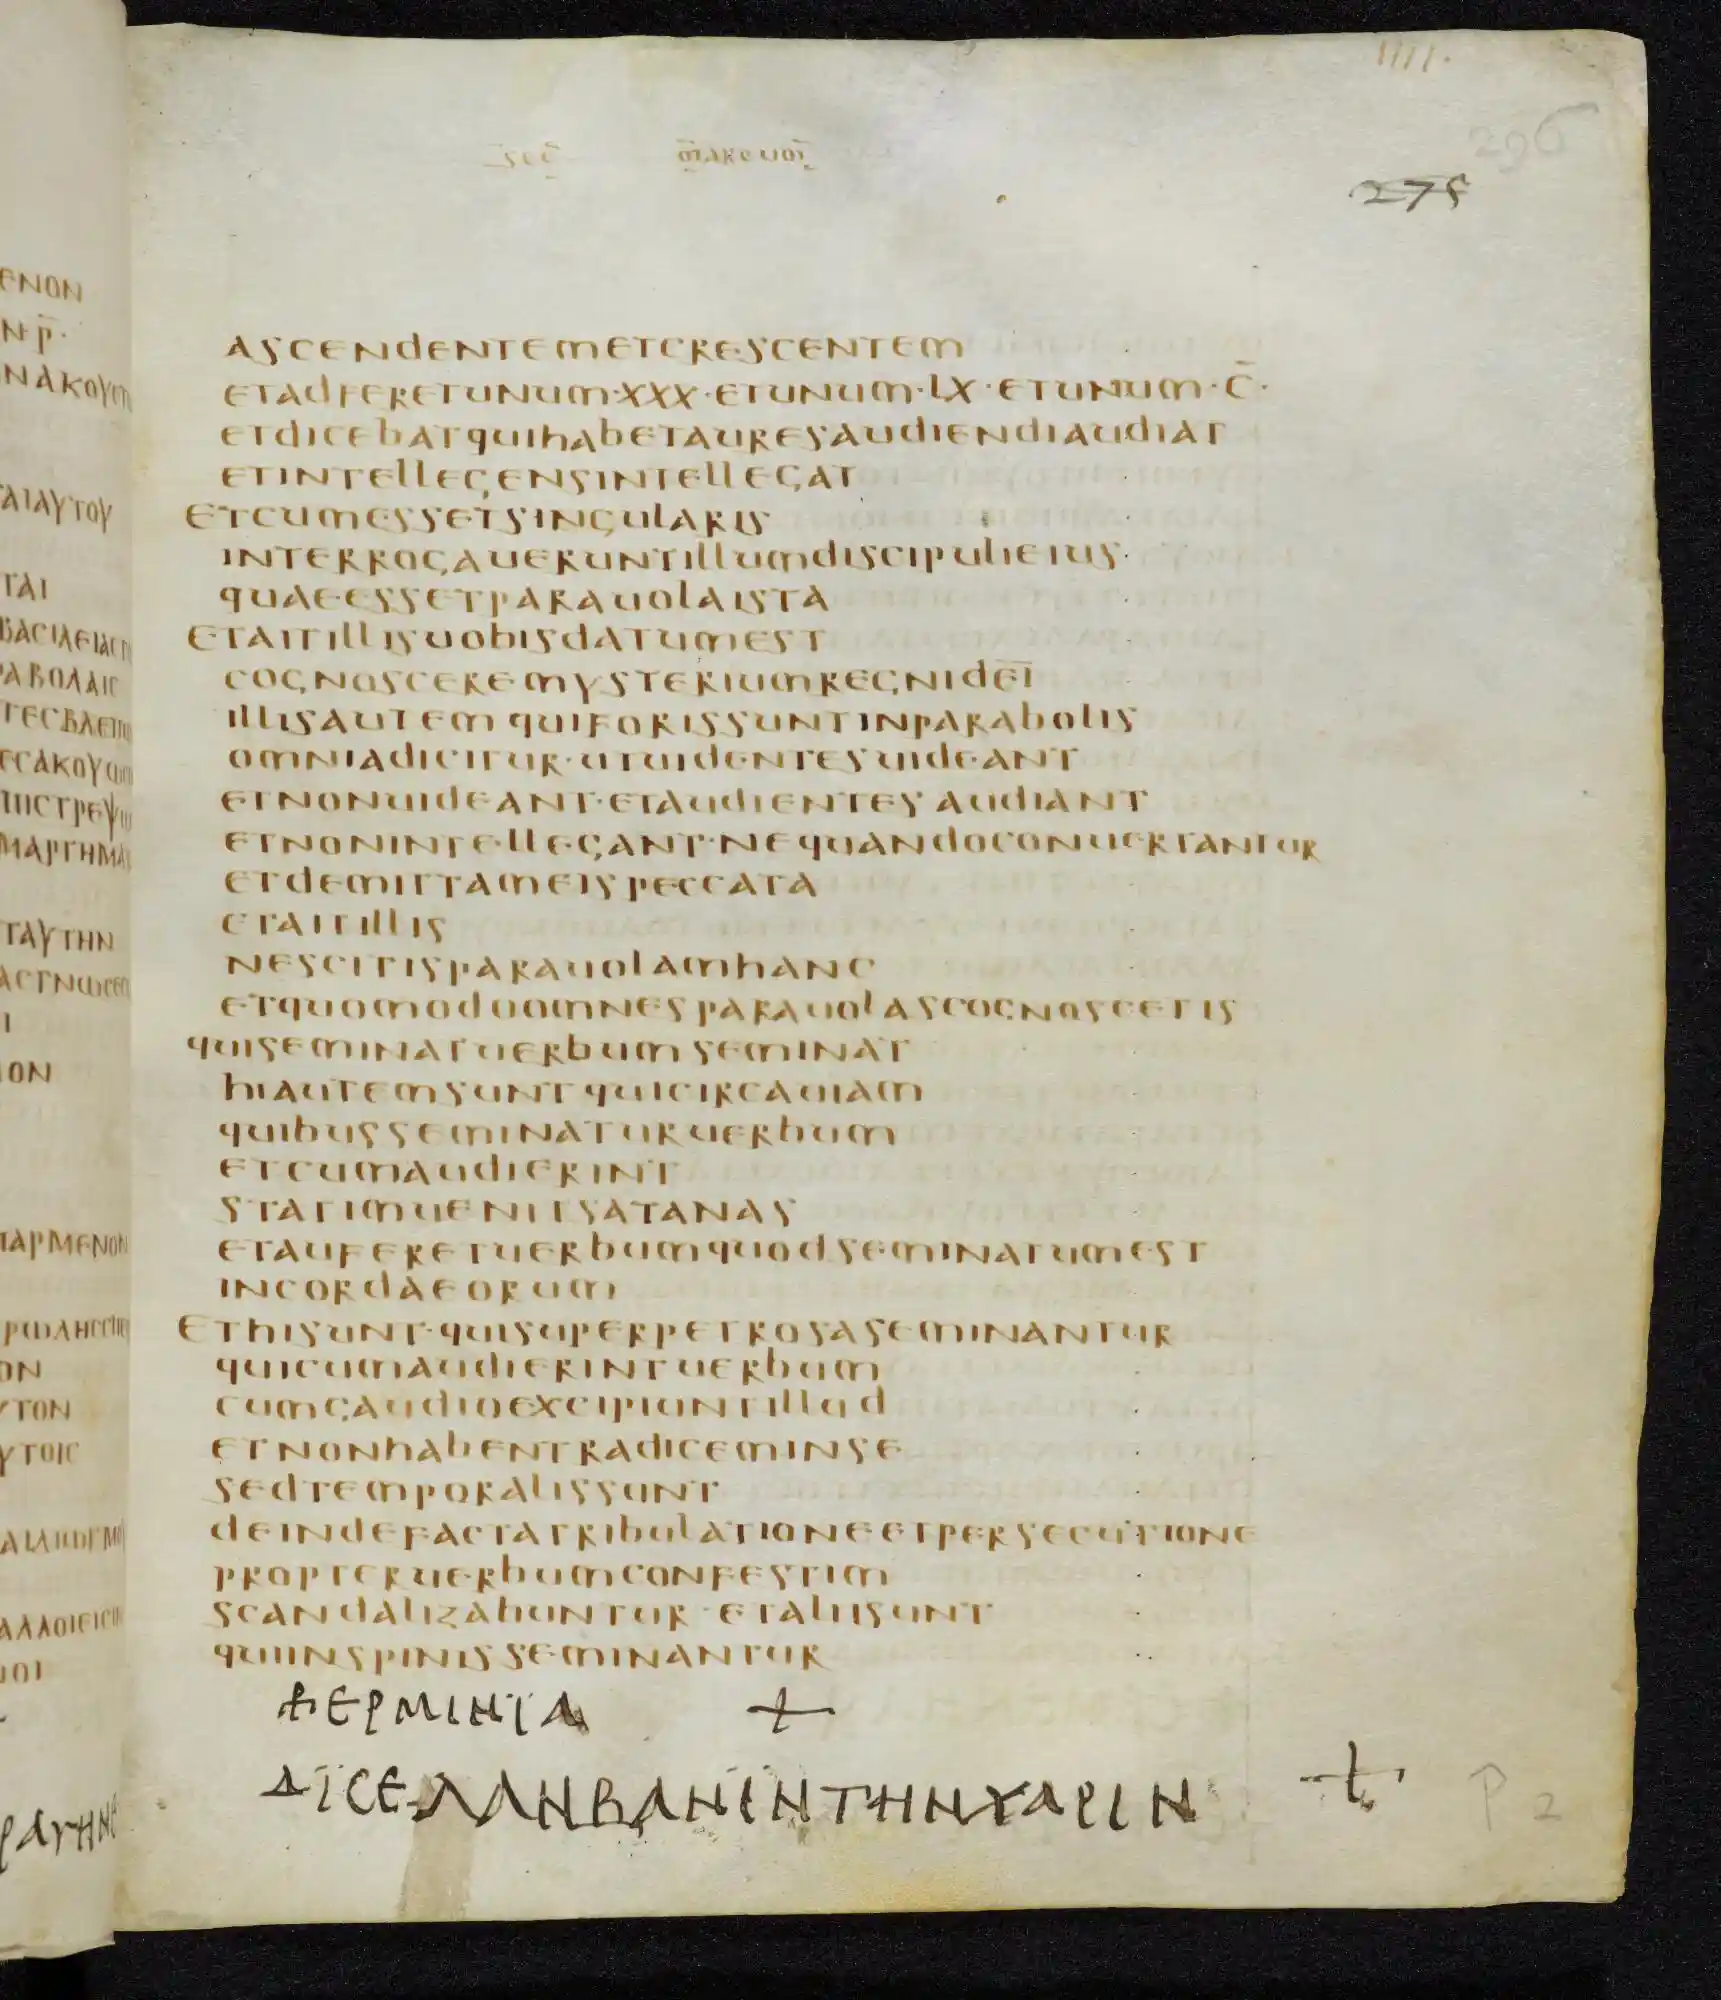 IIII·
296
sec̄ m̄arcum̄
275
ASCENDENTEMETCRESCENTEM
ETADFERETUNUM·XXX·ETUNUM·LX·ETUNUM·C̄·
ETDICEBATQUIHABETAURESAUDIENDIAUDIAT
ETINTELLEGENSINTELLEGAT
ETCUMESSETSINGULARIS
INTERROGAUERUNTILLUMDISCIPULIEIUS·
QUAEESSETPARAUOLAISTA
ETAITILLISUOBISDATUMEST
COGNOSCEREMYSTERIUMREGNIDEĪ
ILLISAUTEMQUIFORISSUNTINPARABOLIS
OMNIADICITUR·UTUIDENTESUIDEANT
ETNONUIDEANT·ETAUDIENTESAUDIANT
ETNONINTELLEGANT·NEQUANDOCONUERTANTUR
ETDEMITTAMEISPECCATA
ETAITILLIS
NESCITISPARAUOLAMHANC
ETQUOMODOOMNESPARAUOLASCOGNOSCETIS
QUISEMINATUERBUMSEMINAT
HIAUTEMSUNTQUICIRCAUIAM
QUIBUSSEMINATURUERBUM
ETCUMAUDIERINT
STATIMUENITSATANAS
ETAUFERETUERBUMQUODSEMINATUMEST
INCORDAEORUM
ETHISUNT·QUISUPERPETROSASEMINANTUR
QUICUMAUDIERINTUERBUM
CUMGAUDIOEXCIPIUNTILLUD
ETNONHABENTRADICEMINSE
SEDTEMPORALISSUNT
DEINDEFACTATRIBULATIONEETPERSECUTIONE
PROPTERUERBUMCONFESTIM
SCANDALIZABUNTUR·ETALIISUNT
QUIINSPINISSEMINANTUR
ΕΡΜΙΗΙΑ +
ΑΪСΕΛΛΗΒΑΝΙΝΤΗΝΧΑΡΙΝ +
P 2